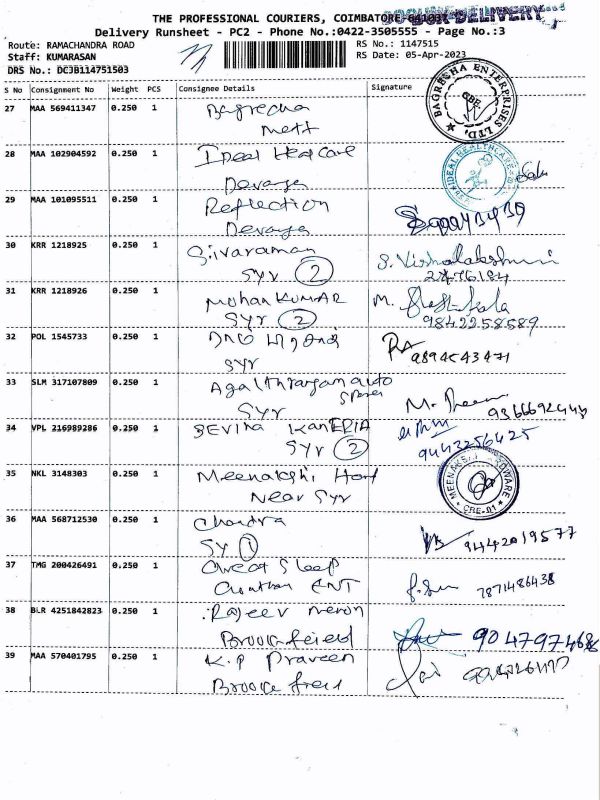 THE PROFESSIONAL COURIERS, COIMBATORE-641037
DUN DELIVERY
Delivery Runsheet - PC2 - Phone No.:0422-3505555 - Page No.:3
Route: RAMACHANDRA ROAD RS No.: 1147515
Staff: KUMARASAN RS Date: 05-Apr-2023
DRS No.: DCJB114751503
S No Consignment No Weight PCS Consignee Details Signature
27 MAA 569411347 0.250 1 Bagrecha
Mett
BAGRECHA ENTERPRISES LTD, CBE
28 MAA 102904592 0.250 1 Ideal Healcare
Devaya
IDEAL HEALTHCARE
29 MAA 101095511 0.250 1 Reflection
Devaya
30 KRR 1218925 0.250 1 Sivaraman S. Vishalakshmi
Syr 2
31 KRR 1218926 0.250 1 Mohan KUMAR M.
Syr 2 9842258589
32 POL 1545733 0.250 1
Syr 9894543471
33 SLM 317107809 0.250 1 auto
Spares
Syr M. 9366692443
34 VPL 216989286 0.250 1 BEVINA KanERIA
Syr 2 9443256425
35 NKL 3148303 0.250 1 Meenakshi Hard
Near Syr
MEENAKSHI HARDWARE CBE-01
36 MAA 568712530 0.250 1 Chandra
Sy 1 9442019577
37 TMG 200426491 0.250 1 Great Sleep
ENT 7871486438
38 BLR 4251842823 0.250 1 Rajeev menon
Brookfield 9047974686
39 MAA 570401795 0.250 1 K.P Praveen
Brooke